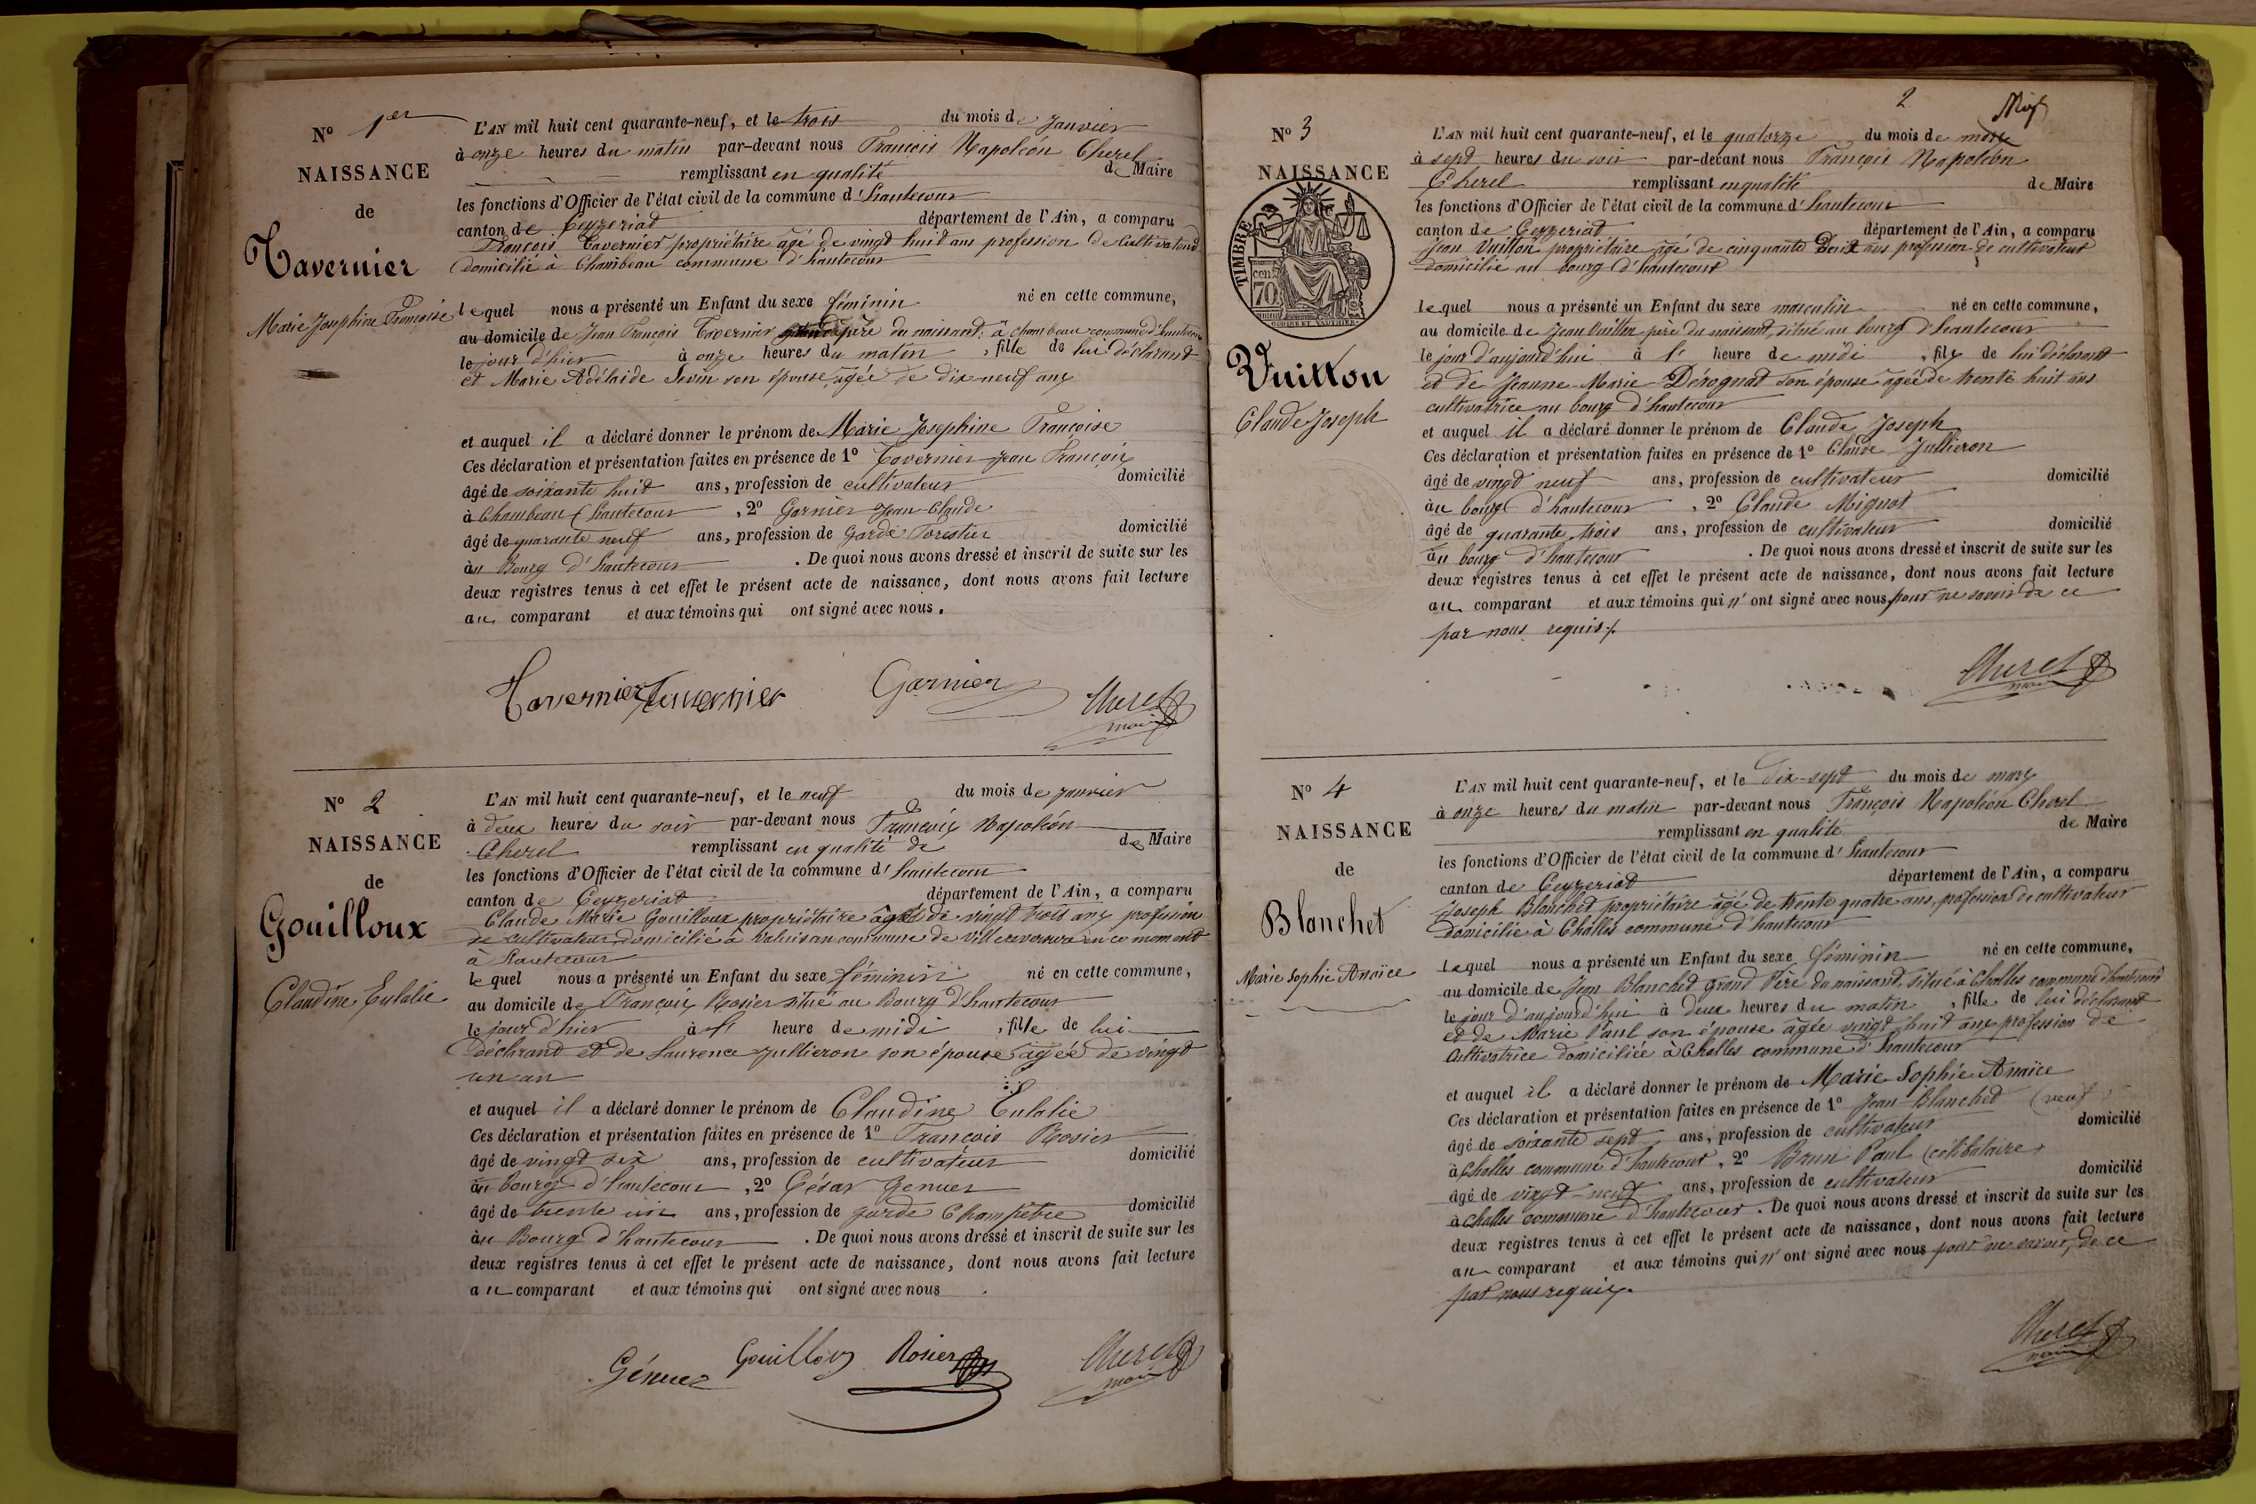 N° 1er
NAISSANCE
de
Tavernier
Marie Josephine Françoise
L'AN mil huit cent quarante-neuf, et le trois du mois de Janvier
à onze heures du matin par-devant nous François Napoléon Cherel
remplissant en qualité de Maire
les fonctions d'Officier de l'état civil de la commune d'hautecour
canton de Ceyzeriat département de l'Ain, a comparu
François Tavernier propriétaire âgé de vingt huit ans profession de Cultivateur
domicilié à Chambeau commune d'hautecour
lequel nous a présenté un Enfant du sexe féminin né en cette commune,
au domicile de Jean François Tavernier père du naissant, à chambeau commune d'hautecour
le jour d'hier à onze heures du matin, fille de lui déclarant
et Marie Adélaide Sevin son épouse âgée de dix neuf ans
et auquel il a déclaré donner le prénom de Marie Josephine Françoise
Ces déclaration et présentation faites en présence de 1° Tavernier Jean François
âgé de soixante huit ans, profession de cultivateur domicilié
à Chambeau (hautecour, 2° Garnier Jean Claude
âgé de quarante neuf ans, profession de Garde Forestier domicilié
au Bourg d'hautecour. De quoi nous avons dressé et inscrit de suite sur les
deux registres tenus à cet effet le présent acte de naissance, dont nous avons fait lecture
au comparant et aux témoins qui ont signé avec nous.
Tavernier Tavernier Garnier Cherel
maire
N° 2
NAISSANCE
de
Gouilloux
Claudine Eulalie
L'AN mil huit cent quarante-neuf, et le neuf du mois de janvier
à deux heures du soir par-devant nous François Napoléon
Cherel remplissant en qualité de de Maire
les fonctions d'Officier de l'état civil de la commune d'hautecour
canton de Ceyzeriat département de l'Ain, a comparu
Claude Marie Gouilloux propriétaire âgé de vingt trois ans profession
de cultivateur domicilié à commune de Villereversure en ce moment
à hautecour
lequel nous a présenté un Enfant du sexe féminin né en cette commune,
au domicile de François Rosier situé au Bourg d'hautecour
le jour d'hier à l' heure de midi, fille de lui
déclarant et de Laurence Jullieron son épouse âgée de vingt
un an
et auquel il a déclaré donner le prénom de Claudine Eulalie
Ces déclaration et présentation faites en présence de 1° François Rosier
âgé de vingt six ans, profession de cultivateur domicilié
au bourg d'hautecour, 2° César Genuer
âgé de trente un ans, profession de garde Champêtre domicilié
au Bourg d'hautecour. De quoi nous avons dressé et inscrit de suite sur les
deux registres tenus à cet effet le présent acte de naissance, dont nous avons fait lecture
au comparant et aux témoins qui ont signé avec nous
Génuer Gouilloux Rosier Cherel
maire
2
N° 3
NAISSANCE
TIMBRE
70
Vuitton
Claude Joseph
L'AN mil huit cent quarante-neuf, et le quatorze du mois de mars
à sept heures du soir par-devant nous François Napoléon
Cherel remplissant en qualité de Maire
les fonctions d'Officier de l'état civil de la commune d'hautecour
canton de Ceyzeriat département de l'Ain, a comparu
Jean Vuitton propriétaire âgé de cinquante Deux ans profession de cultivateur
domicilié au bourg d'hautecour
lequel nous a présenté un Enfant du sexe masculin né en cette commune,
au domicile de Jean Vuitton père du naissant, situé au bourg d'hautecour
le jour d'aujourd'hui à l' heure de midi, fils de lui déclarant
et de Jeanne Marie Dérognat son épouse âgée de trente huit ans
cultivatrice au bourg d'hautecour
et auquel il a déclaré donner le prénom de Claude Joseph
Ces déclaration et présentation faites en présence de 1° Claude Jullieron
âgé de vingt neuf ans, profession de cultivateur domicilié
au bourg d'hautecour, 2° Claude Mignot
âgé de quarante trois ans, profession de cultivateur domicilié
au bourg d'hautecour. De quoi nous avons dressé et inscrit de suite sur les
deux registres tenus à cet effet le présent acte de naissance, dont nous avons fait lecture
au comparant et aux témoins qui n'ont signé avec nous pour ne savoir de ce
par nous requis.
Cherel
maire
N° 4
NAISSANCE
de
Blanchet
Marie Sophie Anaïce
L'AN mil huit cent quarante-neuf, et le Dix-sept du mois de mars
à onze heures du matin par-devant nous François Napoléon Cherel
remplissant en qualité de Maire
les fonctions d'Officier de l'état civil de la commune d'hautecour
canton de Ceyzeriat département de l'Ain, a comparu
Joseph Blanchet propriétaire âgé de trente quatre ans, profession de cultivateur
domicilié à Challes commune d'hautecour
lequel nous a présenté un Enfant du sexe féminin né en cette commune,
au domicile de Jean Blanchet grand Père du naissant, situé à Challes commune d'hautecour
le jour d'aujourd'hui à deux heures du matin, fille de lui déclarant
et de Marie Paul son épouse âgée vingt huit ans profession de
Cultivatrice domiciliée à Challes commune d'hautecour
et auquel il a déclaré donner le prénom de Marie Sophie Anaïce
Ces déclaration et présentation faites en présence de 1° Jean Blanchet (veuf
âgé de soixante sept ans, profession de cultivateur domicilié
à Challes commune d'hautecour, 2° Brun Paul (célibataire
âgé de vingt-neuf ans, profession de cultivateur domicilié
à Challes commune d'hautecour. De quoi nous avons dressé et inscrit de suite sur les
deux registres tenus à cet effet le présent acte de naissance, dont nous avons fait lecture
au comparant et aux témoins qui n'ont signé avec nous pour ne savoir, de ce
par nous requis.
Cherel
maire